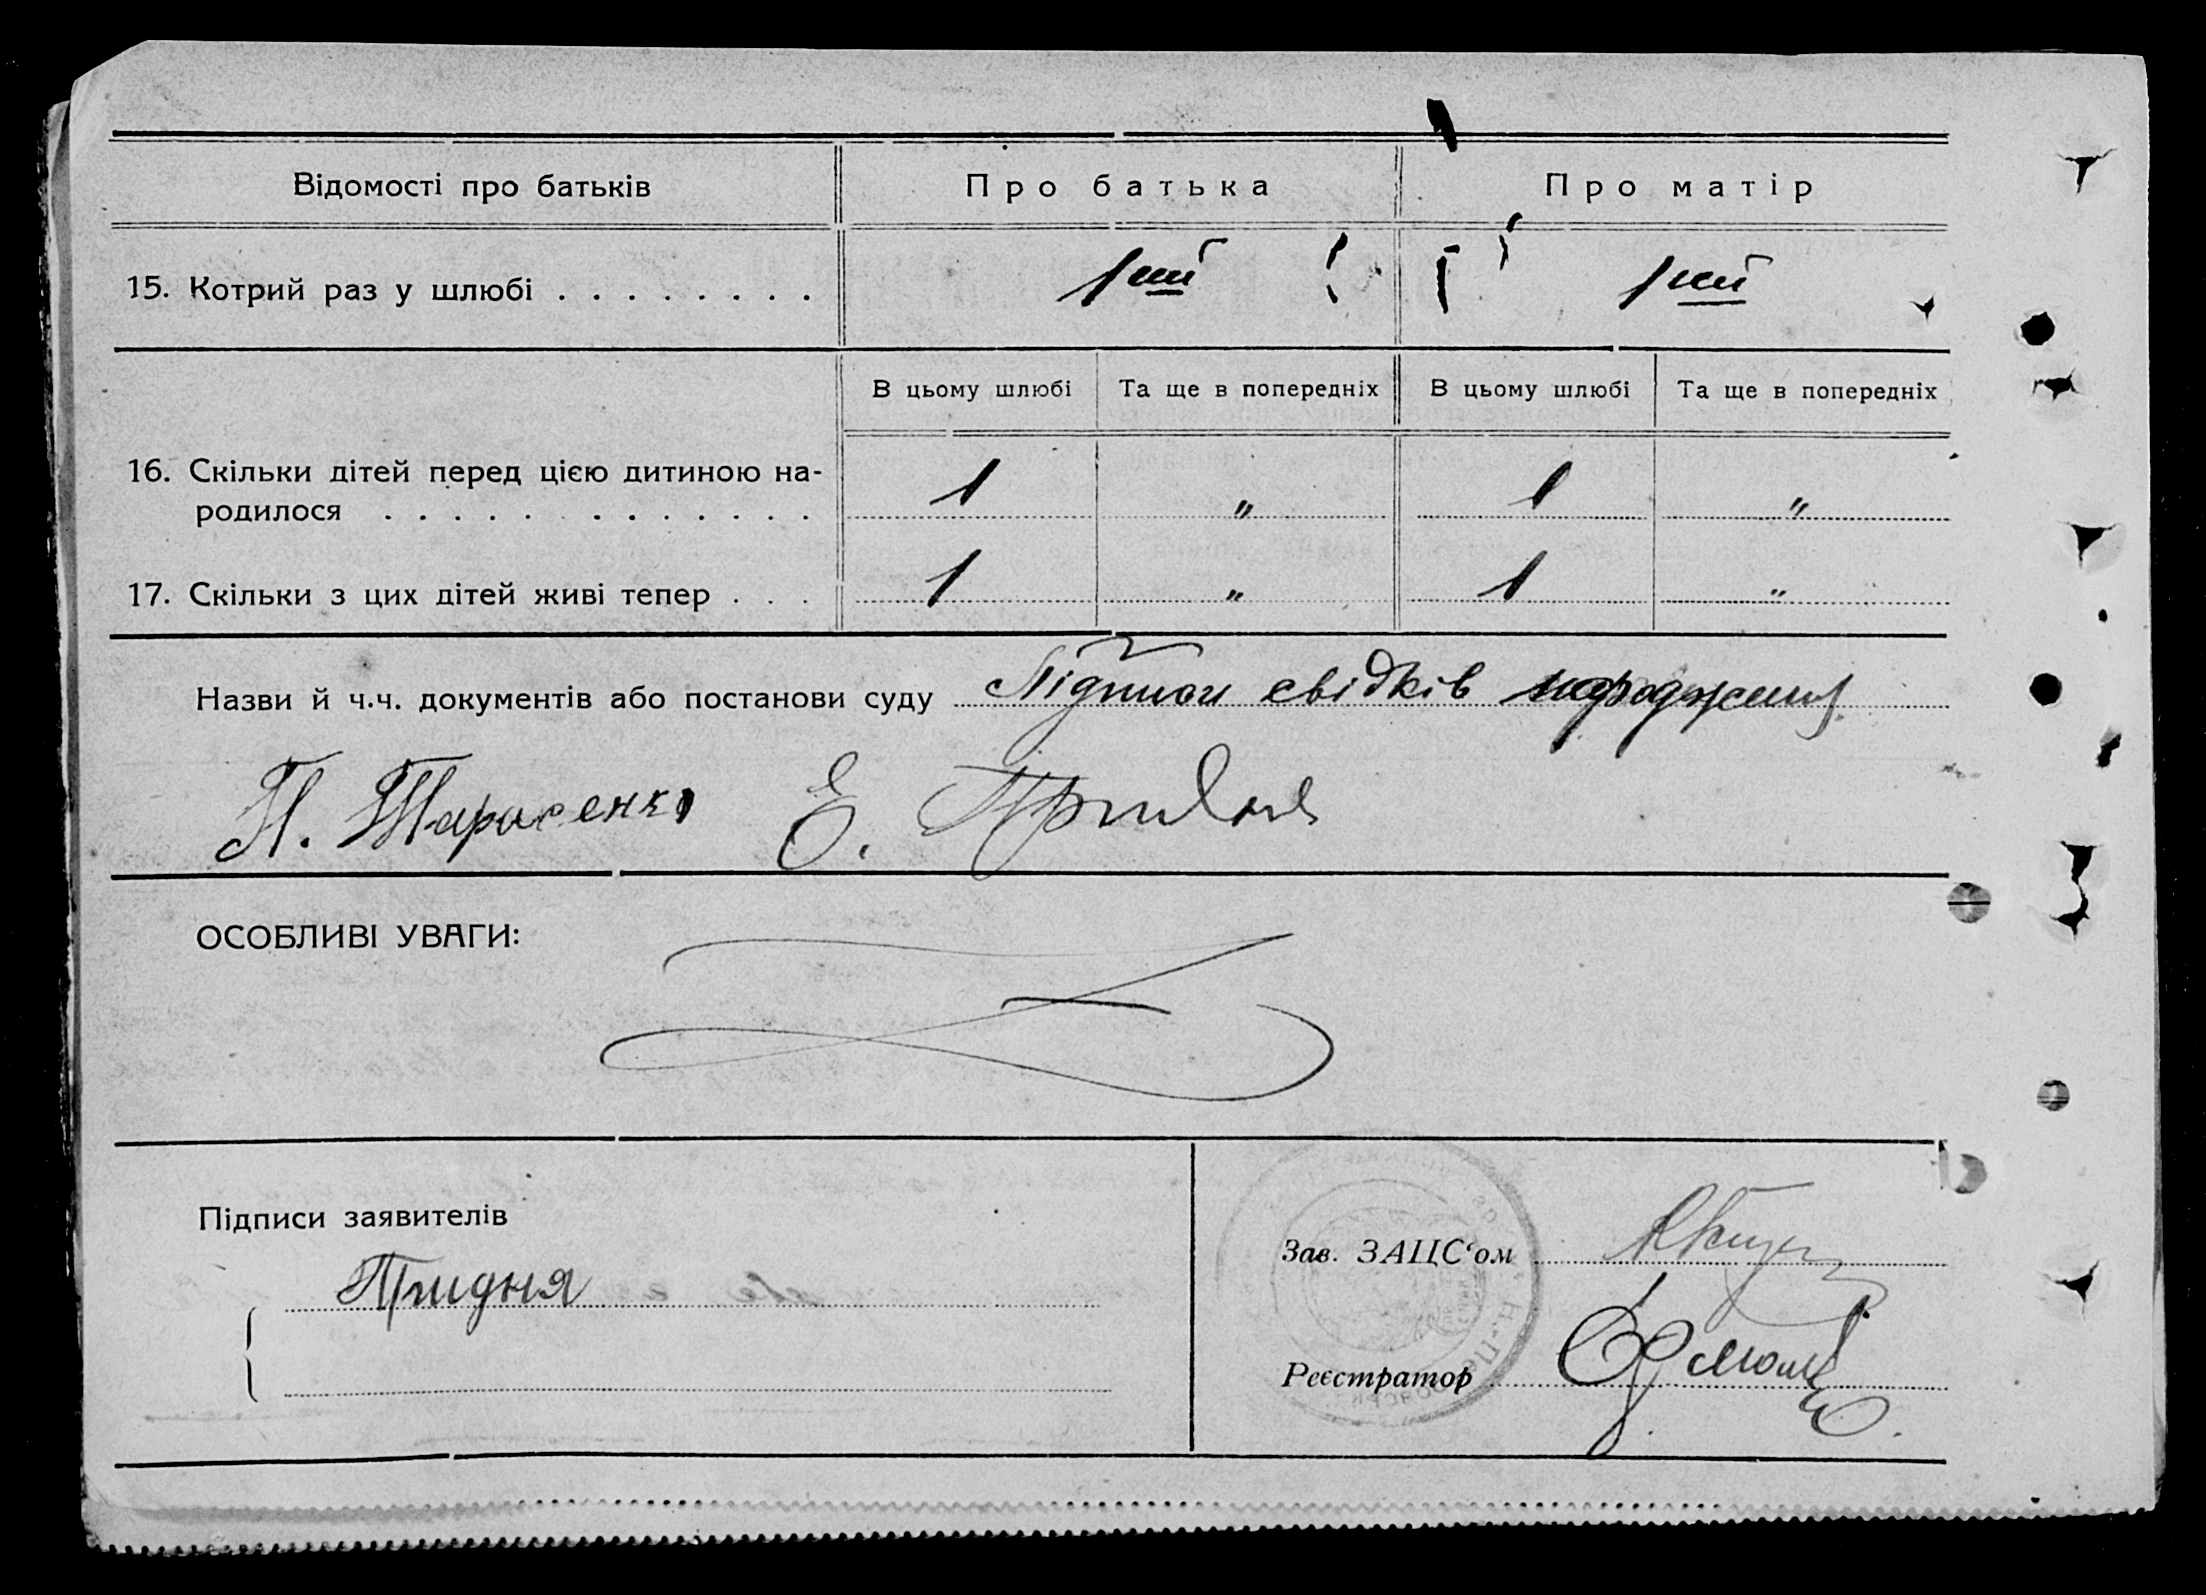 Відомості про батьків Про батька Про матір
15. Котрий раз у шлюбі . . . . . . . . 1ший 1ший
В цьому шлюбі Та ще в попередніх В цьому шлюбі Та ще в попередніх
16. Скільки дітей перед цією дитиною на-
родилося . . . . . . . . . . . . 1 " 1 "
17. Скільки з цих дітей живі тепер . . . 1 " 1 "
Назви й ч.ч. документів або постанови суду Підписи свідків народження
П. Тарасенко Е. Придня
ОСОБЛИВІ УВАГИ:
Підписи заявителів
Придня
Зав. ЗАЦС'ом
Реєстратор